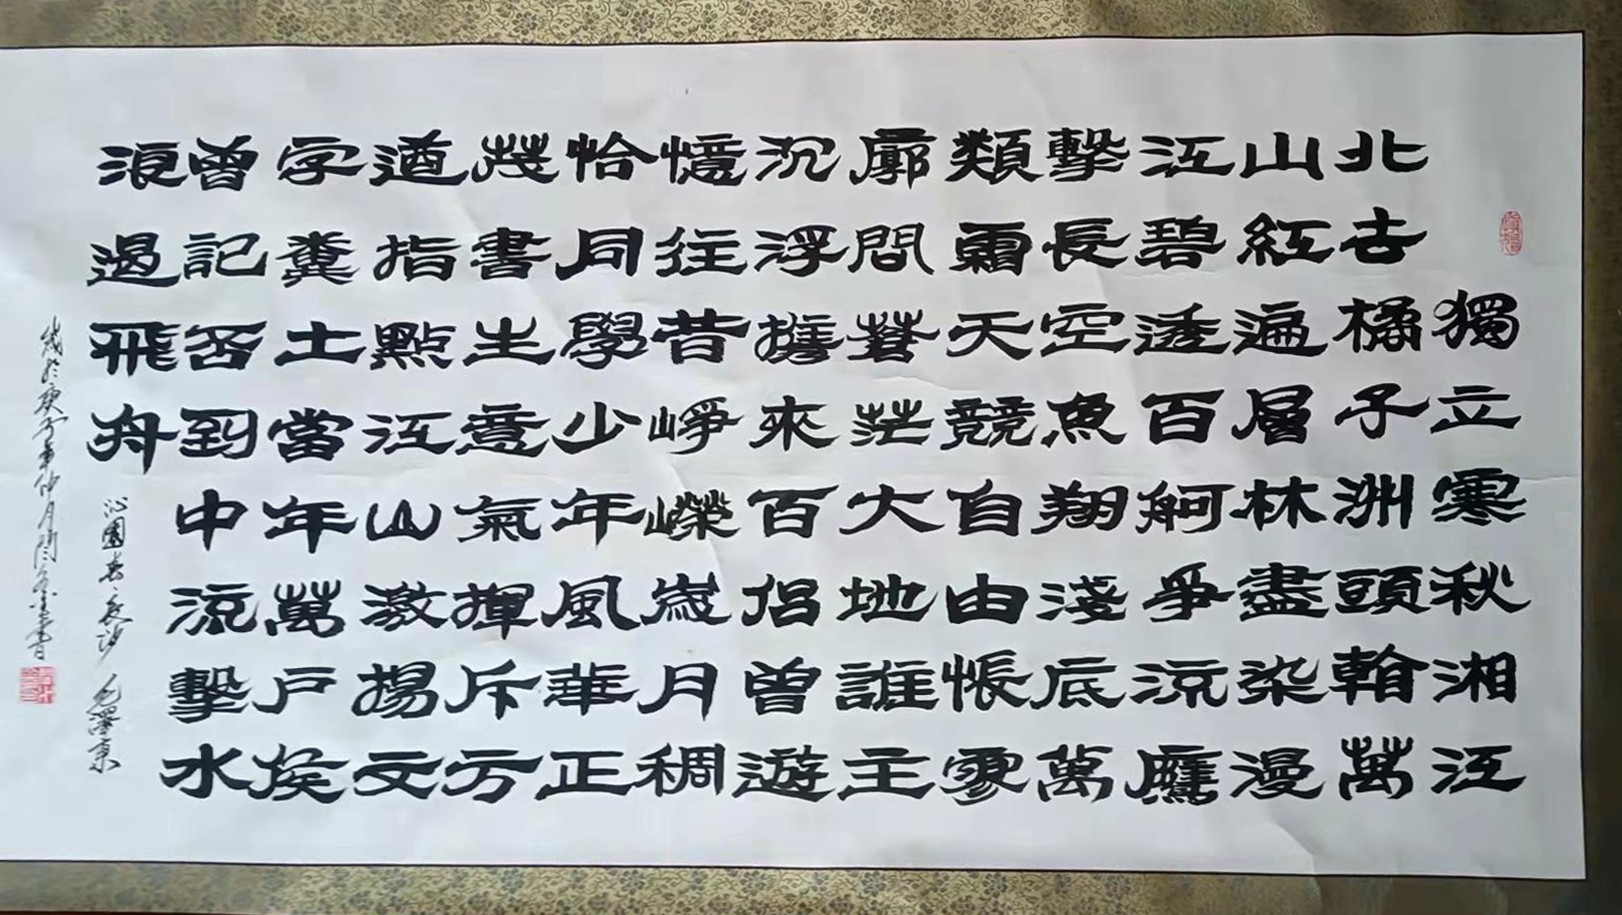 獨立寒秋湘江
北去橘子洲頭看萬
山紅遍層林盡染漫
江碧透百舸爭流鷹
擊長空魚翔淺底萬
類霜天競自由悵寥
廓問蒼茫大地誰主
沉浮攜來百侶曾遊
憶往昔崢嶸歲月稠
恰同學少年風華正
茂書生意氣揮斥方
遒指點江山激揚文
字糞土當年萬戶侯
曾記否到中流擊水
浪遏飛舟
沁園春·長沙 毛澤東
歲於庚子年仲月閆書